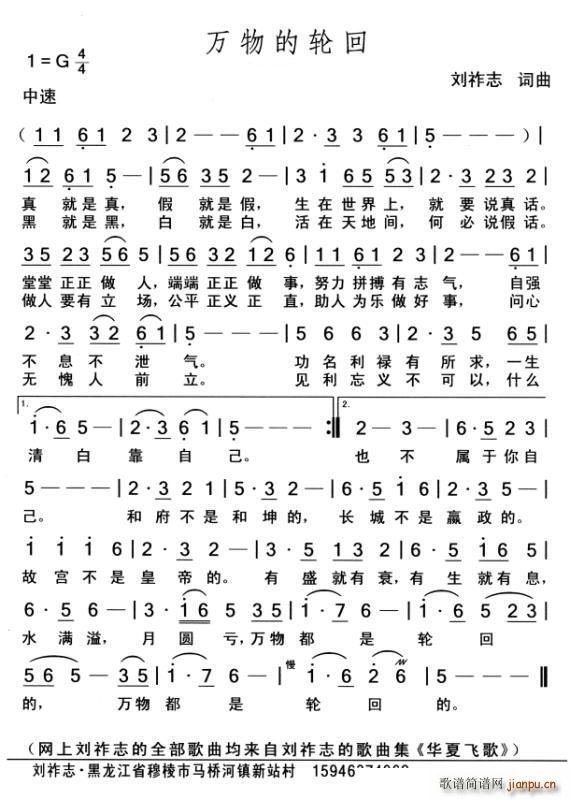 万物的轮回
1=G 4/4
刘祚志 词曲
中速
(11 61 2 3 | 2 - - 61 | 2·3 61 | 5 - - - ) |
12 61 5 - | 56 35 2 - | 3 1 65 6 | 25 23 2 - |
真 就是真， 假 就是假， 生在世界上， 就要说真话。
黑 就是黑， 白 就是白， 活在天地间， 何必说假话。
35 23 5 56 | 56 32 1 12 | 11 61 2 3 | 2 - - 61 |
堂堂正正做人，端端正正做事，努力拼搏有志气， 自强
做人要有立场，公平正义正直，助人为乐做好事， 问心
2·3 32 61 | 5 - - - | 5 6 6 3 | 5·3 2 65 |
不息不泄气。 功名利禄有所求，一生
无愧人前立。 见利忘义不可以，什么
1. 1·6 5 - | 2·3 61 | 5 - - - :‖ 2. 2 - 3 - | 6·5 23 |
清白靠自己。 也不属于你自
5 - - - | 2·3 2 3 | 5·3 2 - | 6·5 6 5 | 3·5 2 - |
己。 和府不是和坤的， 长城不是嬴政的。
1 1 1 6 | 2·1 6 - | 3·5 13 | 2 - - - | 5·3 5 6 |
故宫不是皇帝的。 有盛就有衰，有生就有息，
3·6 6 - | 3·16 5 35 | 1·7 6 - | 1·6 5 23 |
水满溢， 月圆亏，万物都是轮回
56 5 - 35 | 1·7 6 - | 慢 1·6 2 6 | 5 - - - ‖
的， 万物都是轮回的。
（网上刘祚志的全部歌曲均来自刘祚志的歌曲集《华夏飞歌》）
刘祚志·黑龙江省穆棱市马桥河镇新站村 15946
歌谱简谱网
jianpu.cn